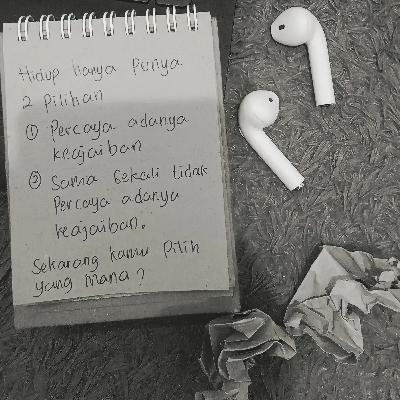 Hidup hanya Punya
2 Pilihan
① Percaya adanya
keajaiban
② Sama sekali tidak
Percaya adanya
keajaiban.
Sekarang kamu Pilih
yang mana?